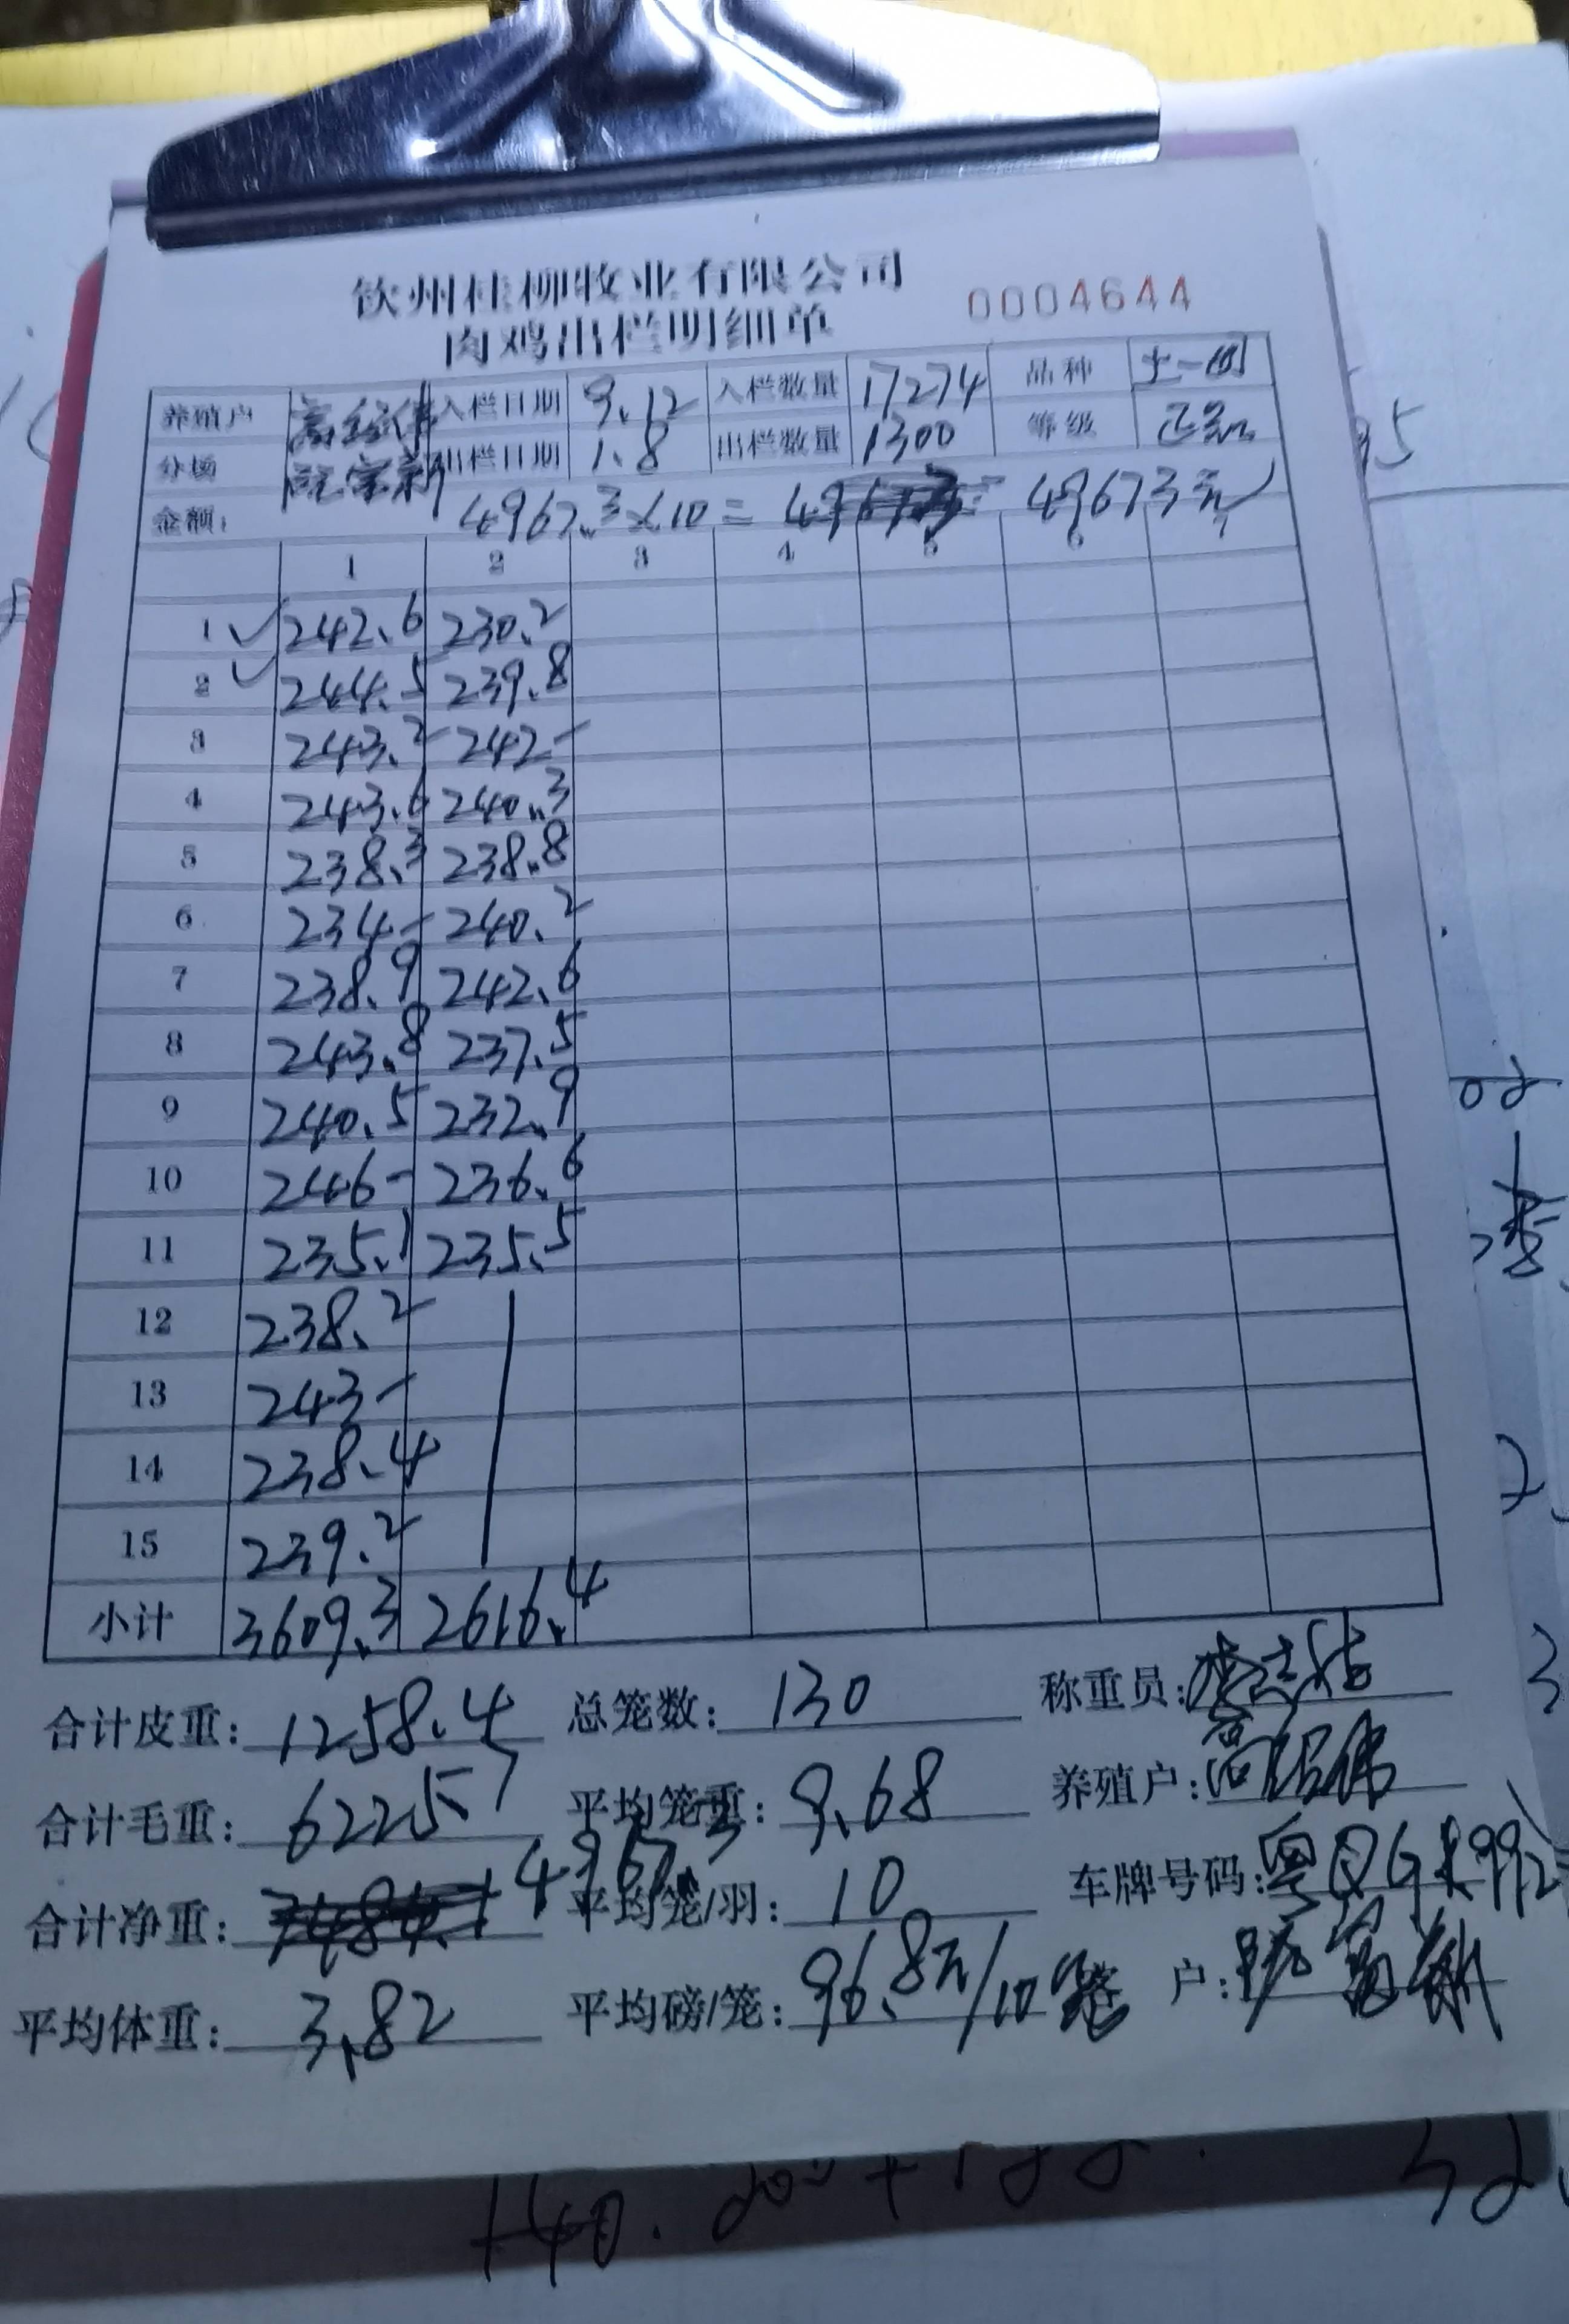 钦州桂柳牧业有限公司
肉鸡出栏明细单 0004644
养殖户 入栏日期 9.12 入栏数量 17274 品种 土一
分场 出栏日期 1.8 出栏数量 1300 等级 正品
金额: 4967.3×10= 49673元
1 2 3 4 5 6 7
1 ✓ 242.6 230.2
2 ✓ 244.5 239.8
3 243.2 242-
4 243.6 240.3
5 238.3 238.8
6 234- 240.2
7 238.9 242.6
8 243.8 237.5
9 240.5 232.9
10 246- 236.6
11 235.1 235.5
12 238.2
13 243-
14 238.4
15 239.2
小计 3609.3 2616.4
合计皮重: 1258.4 总笼数: 130 称重员:
合计毛重: 6225.7 平均笼重: 9.68 养殖户:
合计净重: 4967.3 平均笼/羽: 10 车牌号码:
平均体重: 3.82 平均磅/笼: 96.8元/10笼 户:
95